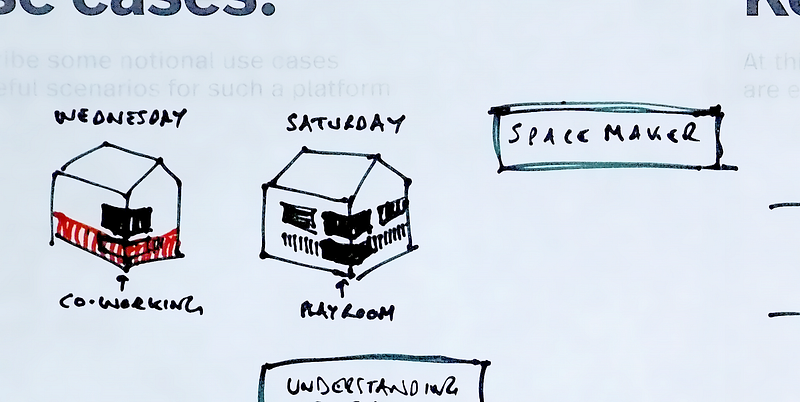 se cases.
ibe some notional use cases
eful scenarios for such a platform
At th
are e
WEDNESDAY
SATURDAY
SPACE MAKER
CO-WORKING
PLAYROOM
UNDERSTANDING